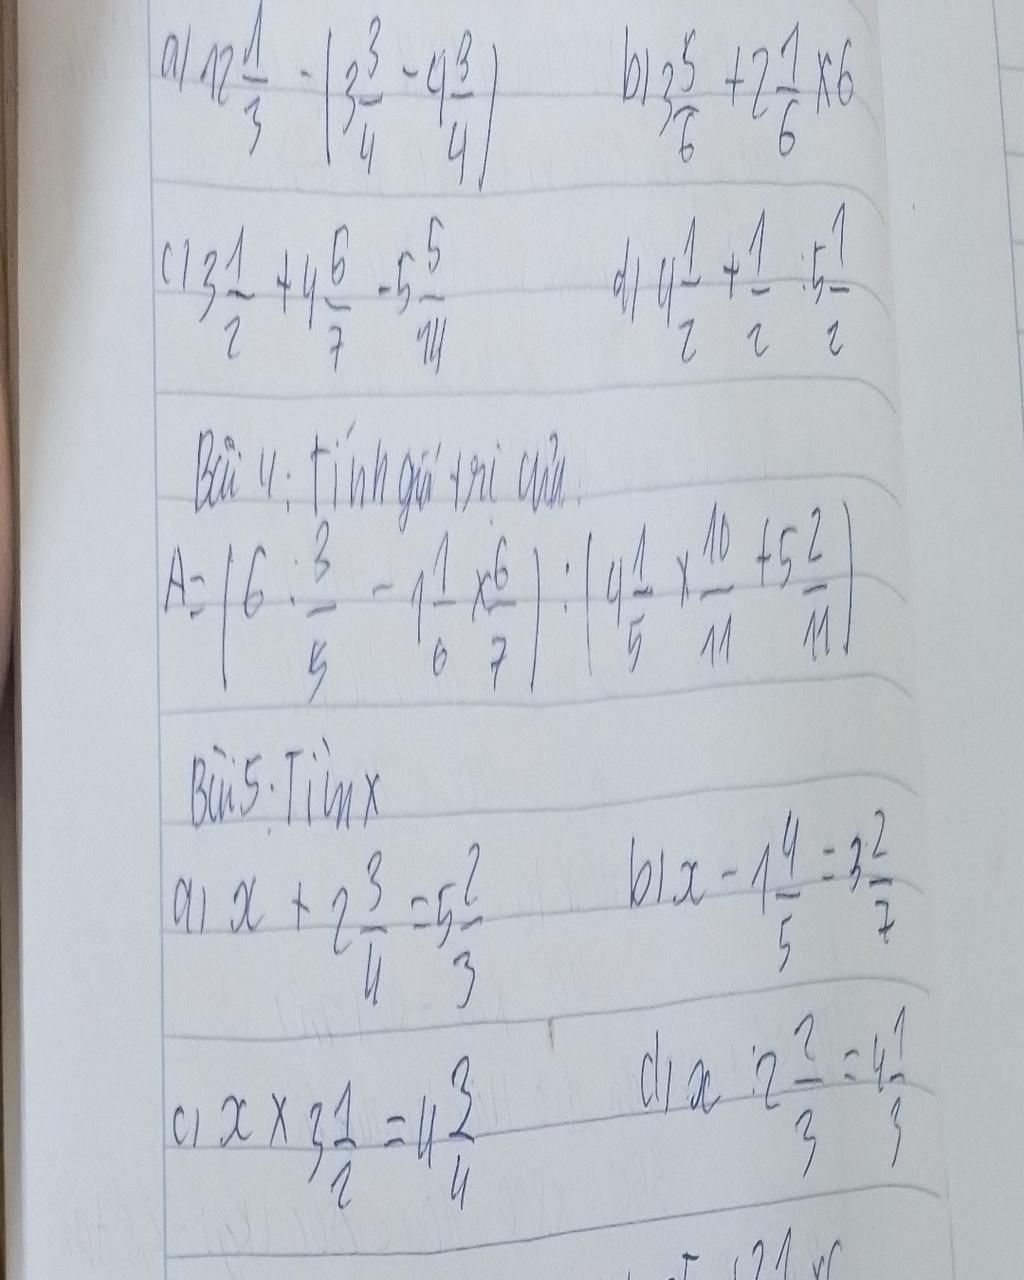 a) 12 1/3 - (3 3/4 - 4 3/4) b) 3 5/6 + 2 1/6 x 6
c) 3 1/2 + 4 6/7 - 5 5/14 d) 4 1/2 + 1/2 : 5 1/2
Bài 4: tính giá trị của:
A = (6 : 3/5 - 1 1/6 x 6/7) : (4 1/5 x 10/11 + 5 2/11)
Bài 5: Tìm x
a) x + 2 3/4 = 5 2/3 b) x - 1 4/5 = 3 2/7
c) x x 3 1/2 = 4 3/4 d) x : 2 2/3 = 4 1/3